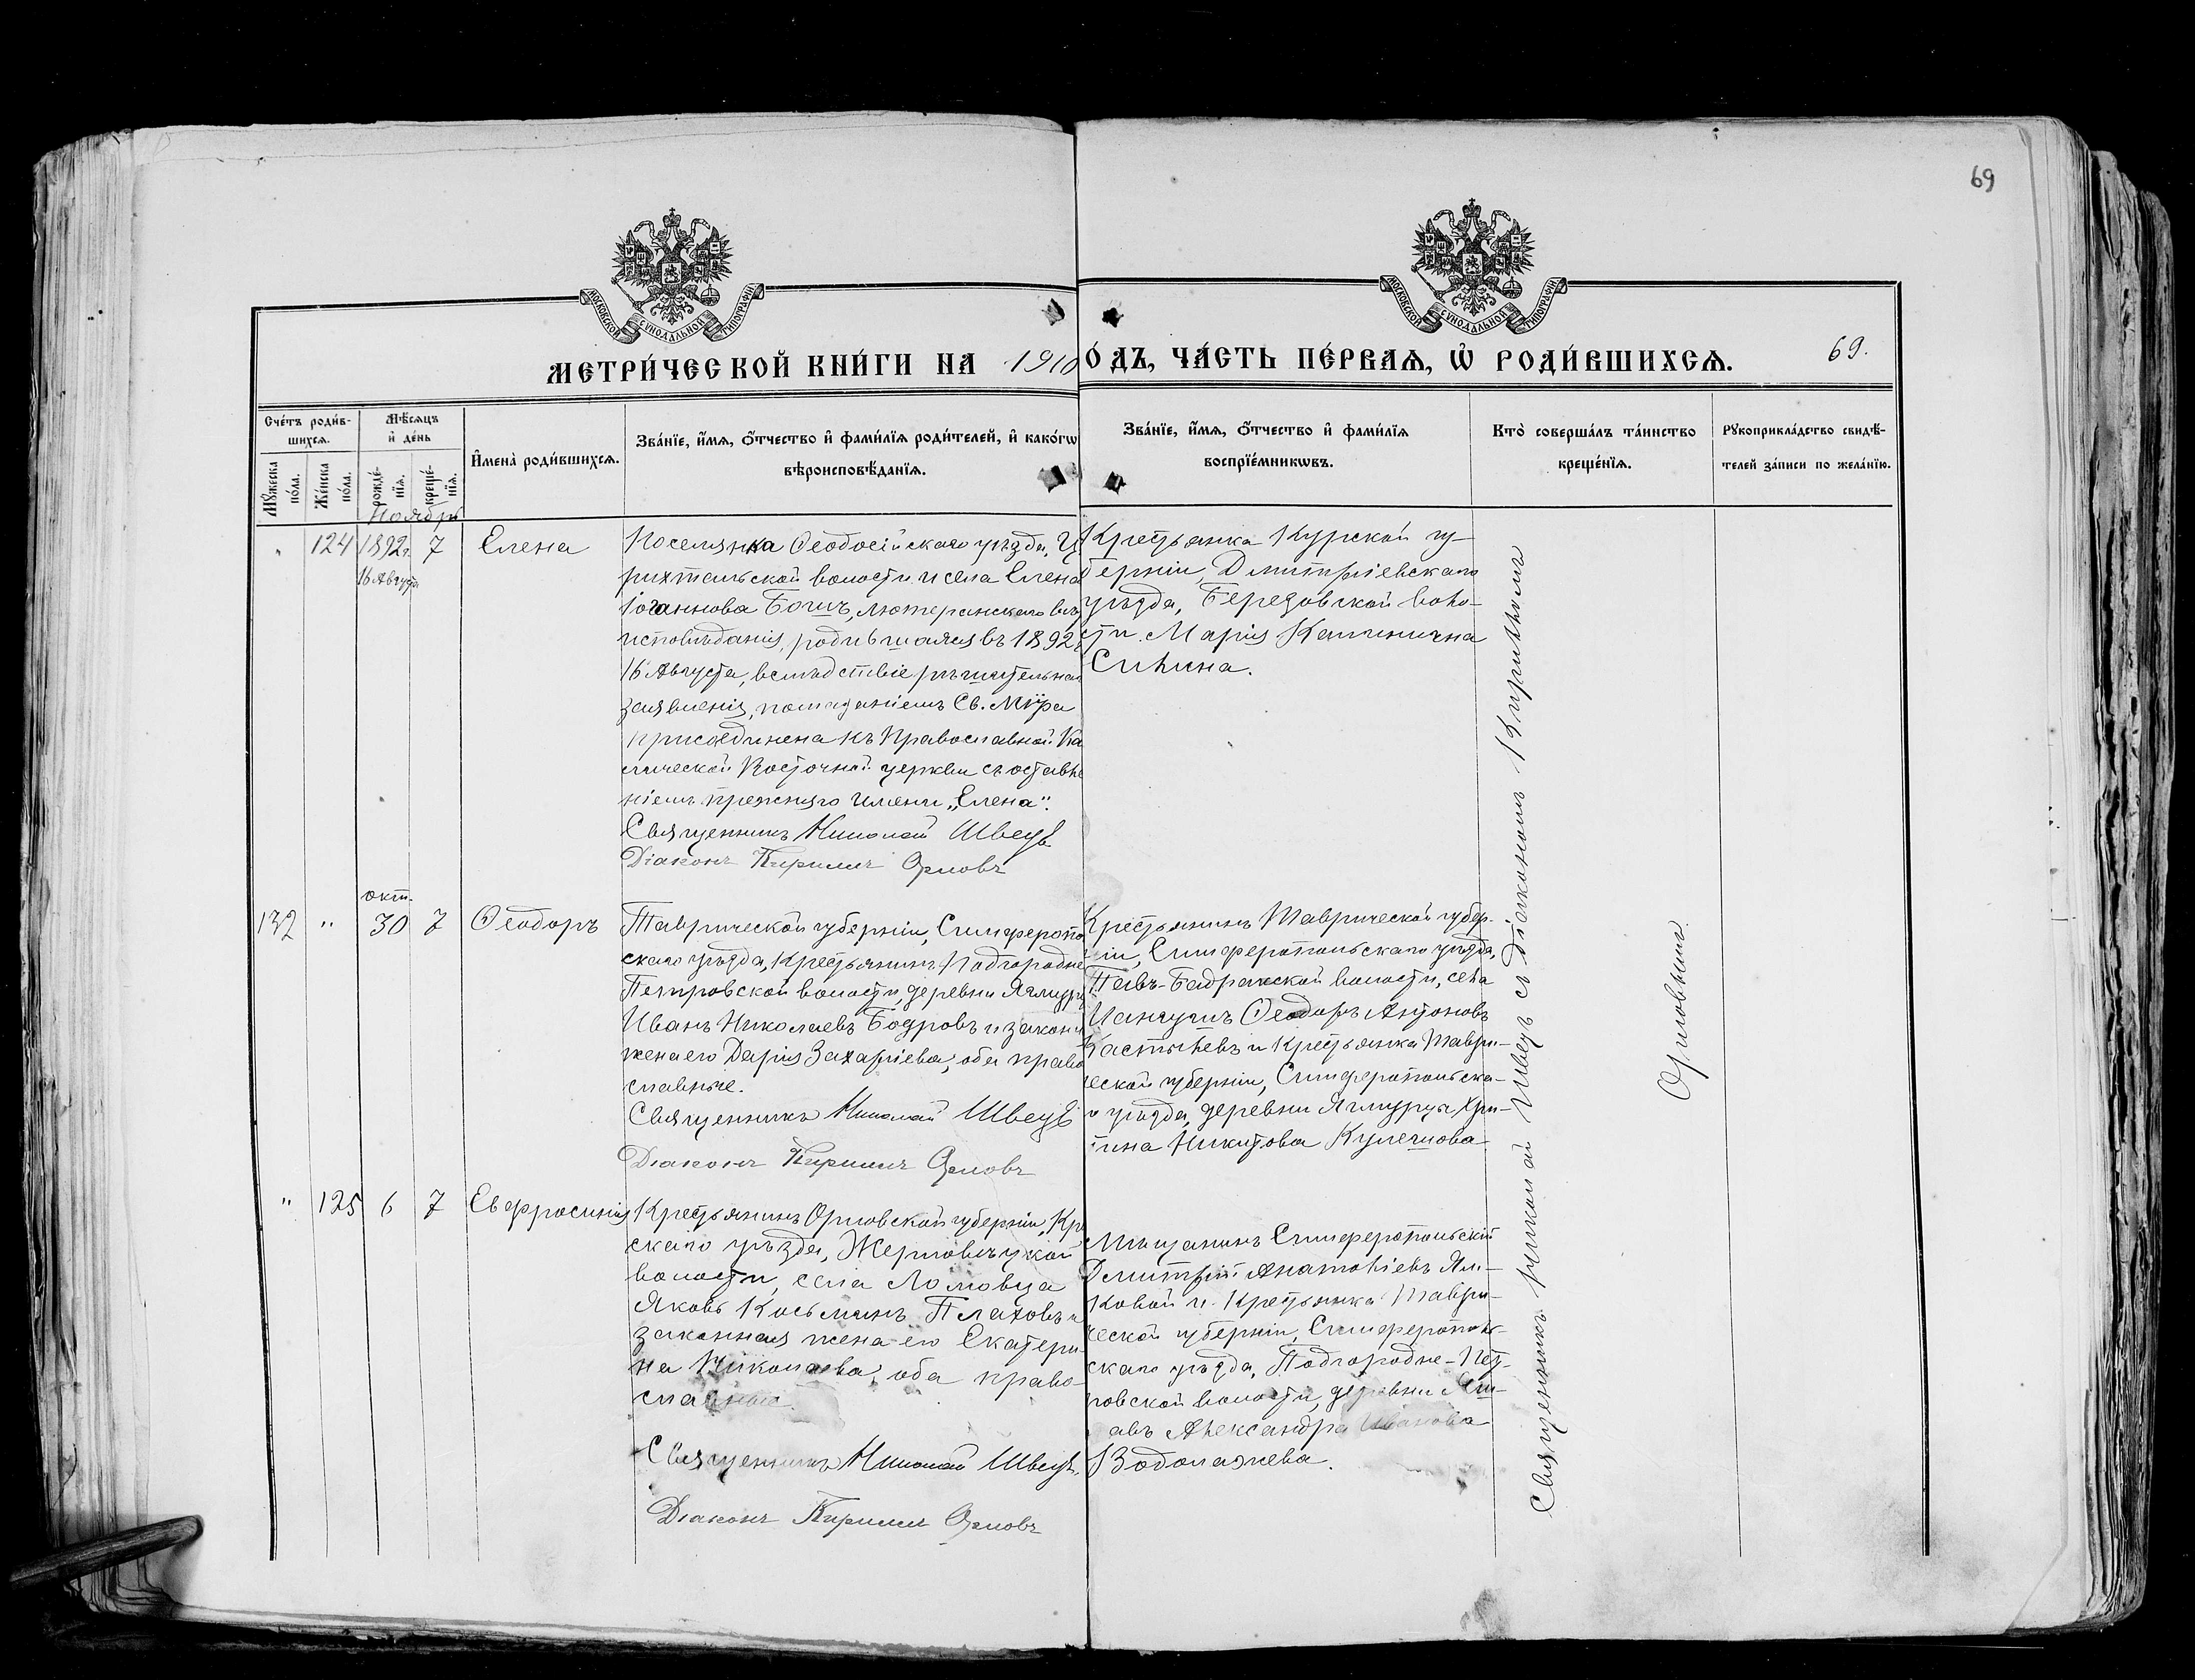 69
МОСКОВСКОЙ СѴНОДАЛЬНОЙ ТИПОГРАФІИ
МОСКОВСКОЙ СѴНОДАЛЬНОЙ ТИПОГРАФІИ
МЕТРИ́ЧЕСКОЙ КНИ́ГИ НА 1910
О́ДЪ, ЧА́СТЬ ПЕ́РВАѦ, Ѡ҆ РОДИ́ВШИХСѦ.
69.
Сче́тъ роди́в-
шихсѧ.
Мѣ́сѧцъ
и҆ де́нь
Мꙋ́жеска
по́ла.
Же́нска
по́ла.
рожде́-
нїѧ.
креще́-
нїѧ.
И҆мена̀ роди́вшихсѧ.
Зва́нїе, и҆́мѧ, ѻ҆́тчество и҆ фами́лїѧ роди́телей, и҆ како́гѡ
вѣроисповѣ́данїѧ.
Зва́нїе, и҆́мѧ, ѻ҆́тчество и҆ фами́лїѧ
воспрїе́мникѡвъ.
Кто̀ соверша́лъ та́инство
креще́нїѧ.
Рꙋкоприкла́дство свидѣ́-
телей за́писи по жела́нїю.
Ноябрь
" 124 1892г. 7 Елена
16 Августа
Поселянка Ѳеодосійскаго уѣзда, Ц
рихтальской волости и села Елена
Іоганнова Бошъ, лютеранскаго вѣ
исповѣданія, родившаяся въ 1892г
16 Августа, вслѣдствіе рѣшительнаг
заявленія, помазаніемъ Св. Мѵра
присоединена къ Православной Ка
лической Восточной церкви съ оставле
ніемъ прежняго имени „Елена".
Священникъ Николай Швецъ
Діаконъ Кириллъ Орловъ
Крестьянка Курской гу-
берніи, Дмитріевскаго
уѣзда, Березовской воло-
сти Марія Калинична
Силина.
окт.
132 " 30 7 Ѳеодоръ
Таврической губерніи, Симферопо
скаго уѣзда, крестьянинъ Подгородне
Петровской волости, деревни Ягмурц
Иванъ Николаевъ Бодровъ и законн
жена его Дарія Захаріева, оба право
славные.
Священникъ Николай Швецъ
Діаконъ Кириллъ Орловъ
Крестьянинъ Таврической губер-
ніи, Симферопольскаго уѣзда,
Тавъ-Бадракской волости, села
Мангушъ Ѳеодоръ Антоновъ
Кастылевъ и крестьянка Таври-
ческой губерніи, Симферопольска-
о уѣзда, деревни Ягмурцы Хри-
тина Никитова Кулешова
" 125 6 7 Евфросинія
Крестьянинъ Орловской губерніи, Кро
скаго уѣзда, Жерновецкой
волости, села Ломовца
Яковъ Косьминъ Плаховъ и
законная жена его Екатери
на Николаева, оба право-
славные.
Священникъ Николай Швецъ.
Діаконъ Кириллъ Орловъ
Мѣщанинъ Симферопольскій
Димитрій Анатоліевъ Ял-
ковой и крестьянка Таври-
ческой губерніи, Симферополь-
скаго уѣзда, Подгородне-Пет-
ровской волости, деревни
Александра Иванова
Водолажева.
Священникъ Николай Швецъ съ діакономъ Кирилломъ
Орловымъ